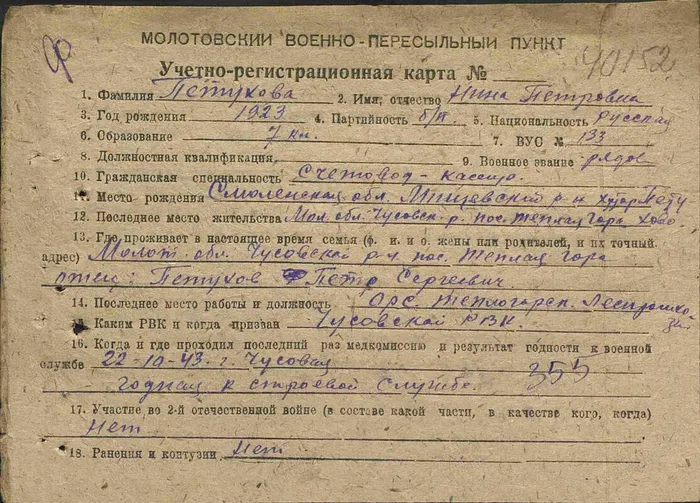 Ф 40152
МОЛОТОВСКИЙ ВОЕННО-ПЕРЕСЫЛЬНЫЙ ПУНКТ
Учетно-регистрационная карта №
1. Фамилия Петухова 2. Имя, отчество Нина Петровна
3. Год рождения 1923 4. Партийность б/п 5. Национальность Русская
6. Образование 7 кл. 7. ВУС № 133
8. Должностная квалификация 9. Военное звание рядов
10. Гражданская специальность Счетовод-кассир.
11. Место рождения Смоленская обл. р-н хутор Пету
12. Последнее место жительства Мол. обл. Чусовск. р. пос. Теплая гора
13. Где проживает в настоящее время семья (ф. и. и о. жены или родителей, и их точный
адрес) Молот. обл. Чусовской р-н пос. Теплая гора
отец: Петухов Петр Сергеевич
14. Последнее место работы и должность Орс Теплогорск.
15. Каким РВК и когда призван Чусовской РВК.
16. Когда и где проходил последний раз медкомиссию и результат годности к военной
службе 22-10-43 г. Чусовая
годная к строевой службе. 355
17. Участие во 2-й отечественной войне (в составе какой части, в качестве кого, когда)
Нет
18. Ранения и контузии Нет